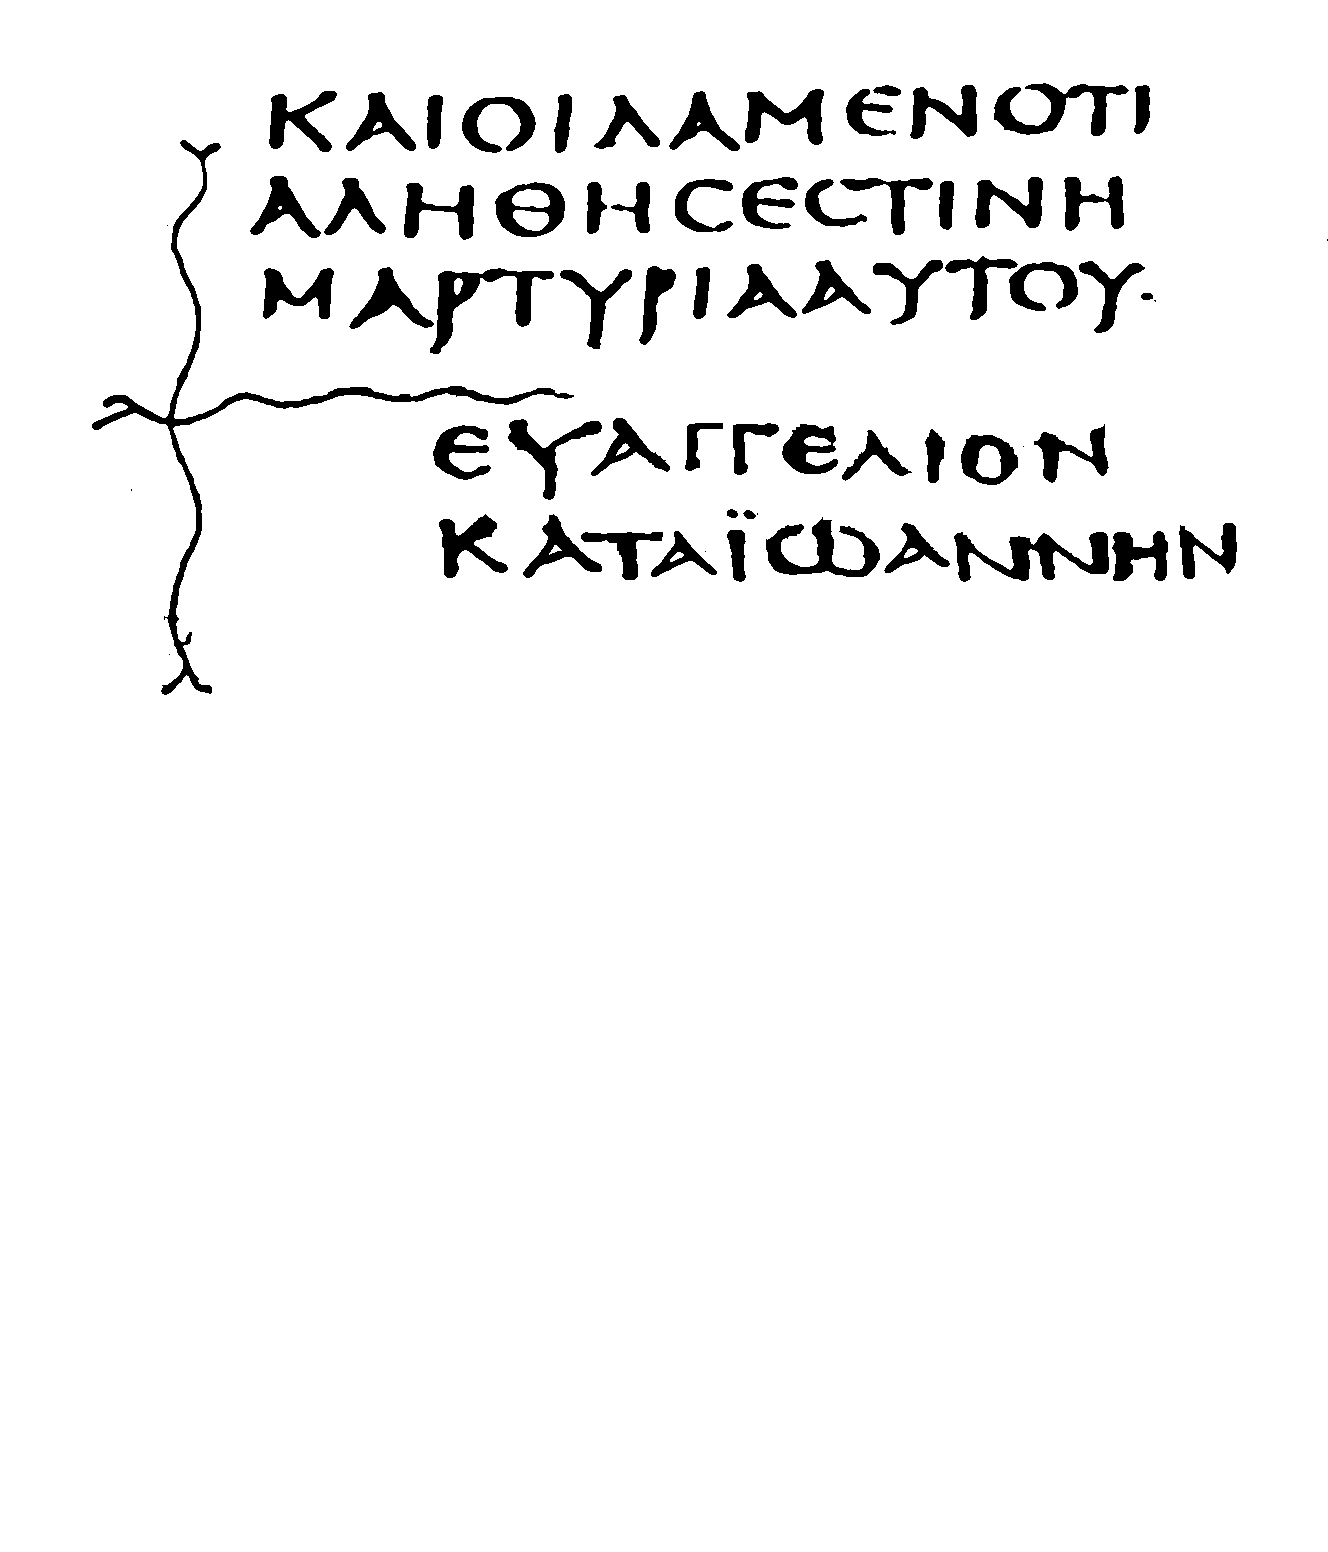 ΚΑΙΟΙΛΑΜΕΝΟΤΙ
ΑΛΗΘΗϹΕϹΤΙΝΗ
ΜΑΡΤΥΡΙΑΑΥΤΟΥ·
ΕΥΑΓΓΕΛΙΟΝ
ΚΑΤΑΪΩΑΝΝΗΝ